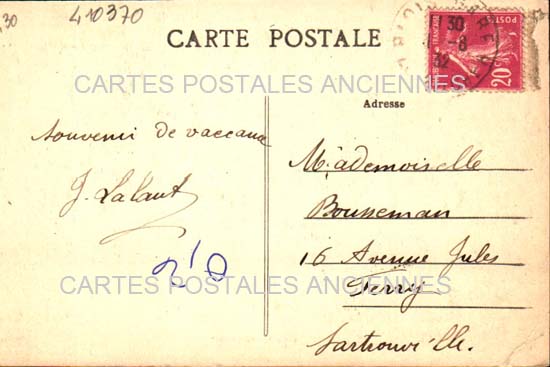 ,30
410370
CARTE POSTALE
30
-8
32
POSTES
20c
CARTES POSTALES ANCIENNES
Adresse
Souvenir de vaccance
J. Lalaut
Mademoiselle
Bousseman
16 Avenue Jules
Ferry
Sartrouville.
CARTES POSTALES ANCIENNES